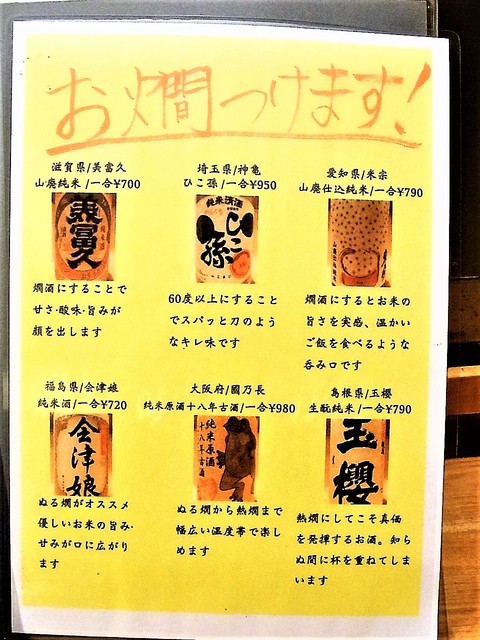 お燗つけます!
滋賀県/美冨久
山廃純米/一合¥700
美冨久
純米酒
燗酒にすることで
甘さ・酸味・旨みが
顔を出します
埼玉県/神亀
ひこ孫/一合¥950
純米清酒
ひこ孫
60度以上にすること
でスパッと刀のよう
なキレ味です
愛知県/米宗
山廃仕込純米/一合¥790
燗酒にするとお米の
旨さを実感、温かい
ご飯を食べるような
呑み口です
福島県/会津娘
純米酒/一合¥720
会津娘
ぬる燗がオススメ
優しいお米の旨み・
甘みが口に広がり
ます
大阪府/國乃長
純米原酒十八年古酒/一合¥980
純米原酒
十八年古酒
ぬる燗から熱燗まで
幅広い温度帯で楽し
めます
島根県/玉櫻
生酛純米/一合¥790
玉櫻
熱燗にしてこそ真価
を発揮するお酒。知ら
ぬ間に杯を重ねてしま
います